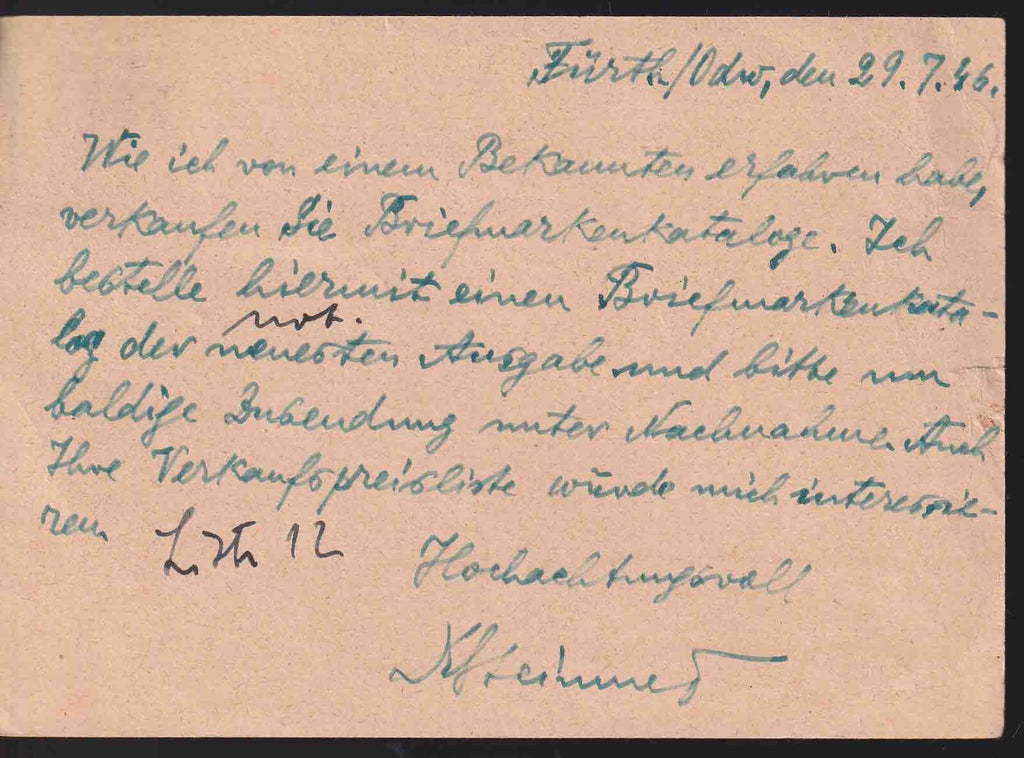 Fürth/Odw, den 29.7.46.
Wie ich von einem Bekannten erfahren habe,
verkaufen Sie Briefmarkenkataloge. Ich
bestelle hiermit einen Briefmarkenkata-
not.
log der neuesten Ausgabe und bitte um
baldige Zusendung unter Nachnahme. Auch
Ihre Verkaufspreisliste würde mich interessie-
ren.
Liste 12
Hochachtungsvoll